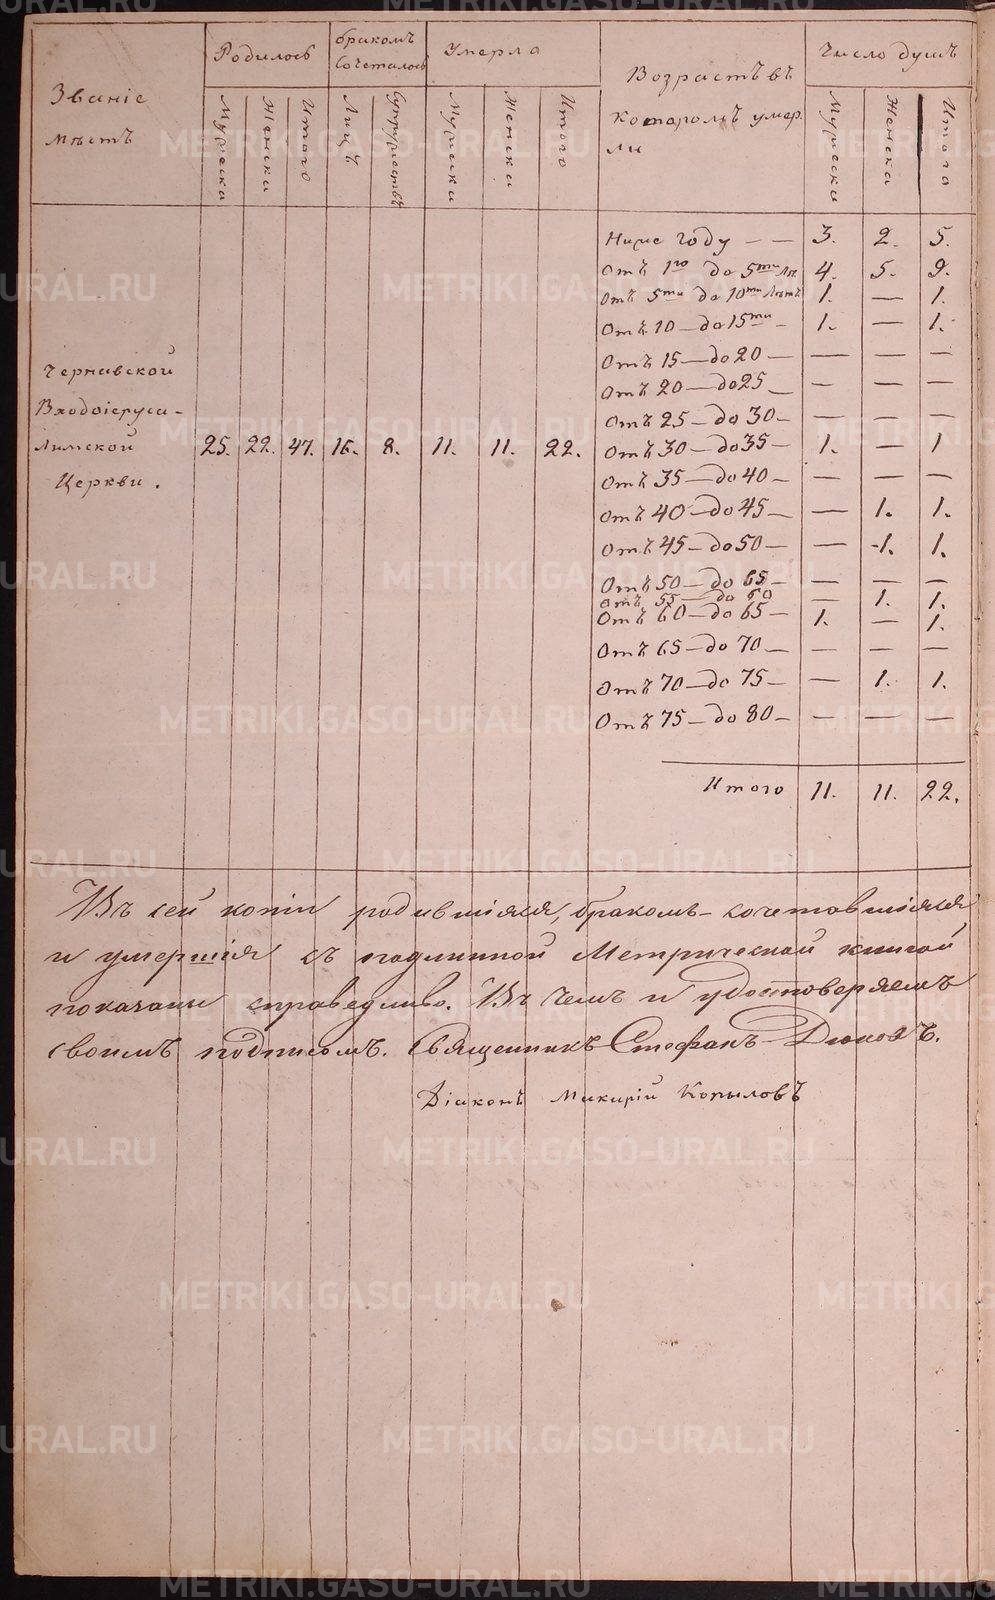 Званіе мѣстъ | Родилось | бракомъ Сочеталось | Умерло | Возрастъ въ которомъ умерли | Число душъ
Мужески | Женски | Итого | Лицъ | Супружествъ | Мужески | Женски | Итого | Мужески | Женска | Итого
Ниже году — — 3. 2. 5.
Отъ 1го до 5ти Лѣ. 4. 5. 9.
Отъ 5ти до 10ти Лѣтъ 1. — 1.
Отъ 10 — до 15ти — 1. — 1.
Отъ 15 — до 20 — — — —
Отъ 20 — до 25 — — — —
Отъ 25 — до 30 — — — —
Чернавской
Входоіеруса-
лимской
Церкви.
25. 22. 47. 16. 8. 11. 11. 22.
Отъ 30 — до 35 — 1. — 1
Отъ 35 — до 40 — — — —
Отъ 40 — до 45 — — 1. 1.
Отъ 45 — до 50 — — 1. 1.
Отъ 50 — до 65 — — — —
отъ 55 — до 60 — 1. 1.
Отъ 60 — до 65 — 1. — 1.
Отъ 65 — до 70 — — — —
Отъ 70 — до 75 — — 1. 1.
Отъ 75 — до 80 — — — —
Итого 11. 11. 22.
Въ сей копіи родившіяся, бракомъ-сочетавшіяся
и умершія съ подлинной Метрической книгой
показаны справедливо. Въ чемъ и удостоверяемъ
своимъ подписомъ. Священникъ Стефанъ Дюковъ.
Діаконъ Макирій Копыловъ
METRIKI.GASO-URAL.RU